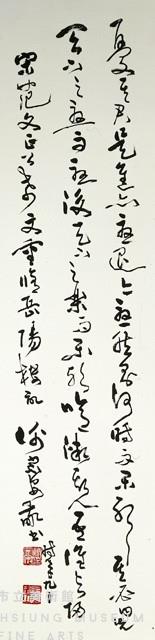 憂其君是進亦憂退亦憂然則何時而樂耶其必曰先
天下之憂而憂後天下之樂而樂歟噫微斯人吾誰與歸
宋范文正公希文重臨岳陽樓記
敬書
市立美術館
HSIUNG MUSEUM
FINE ARTS